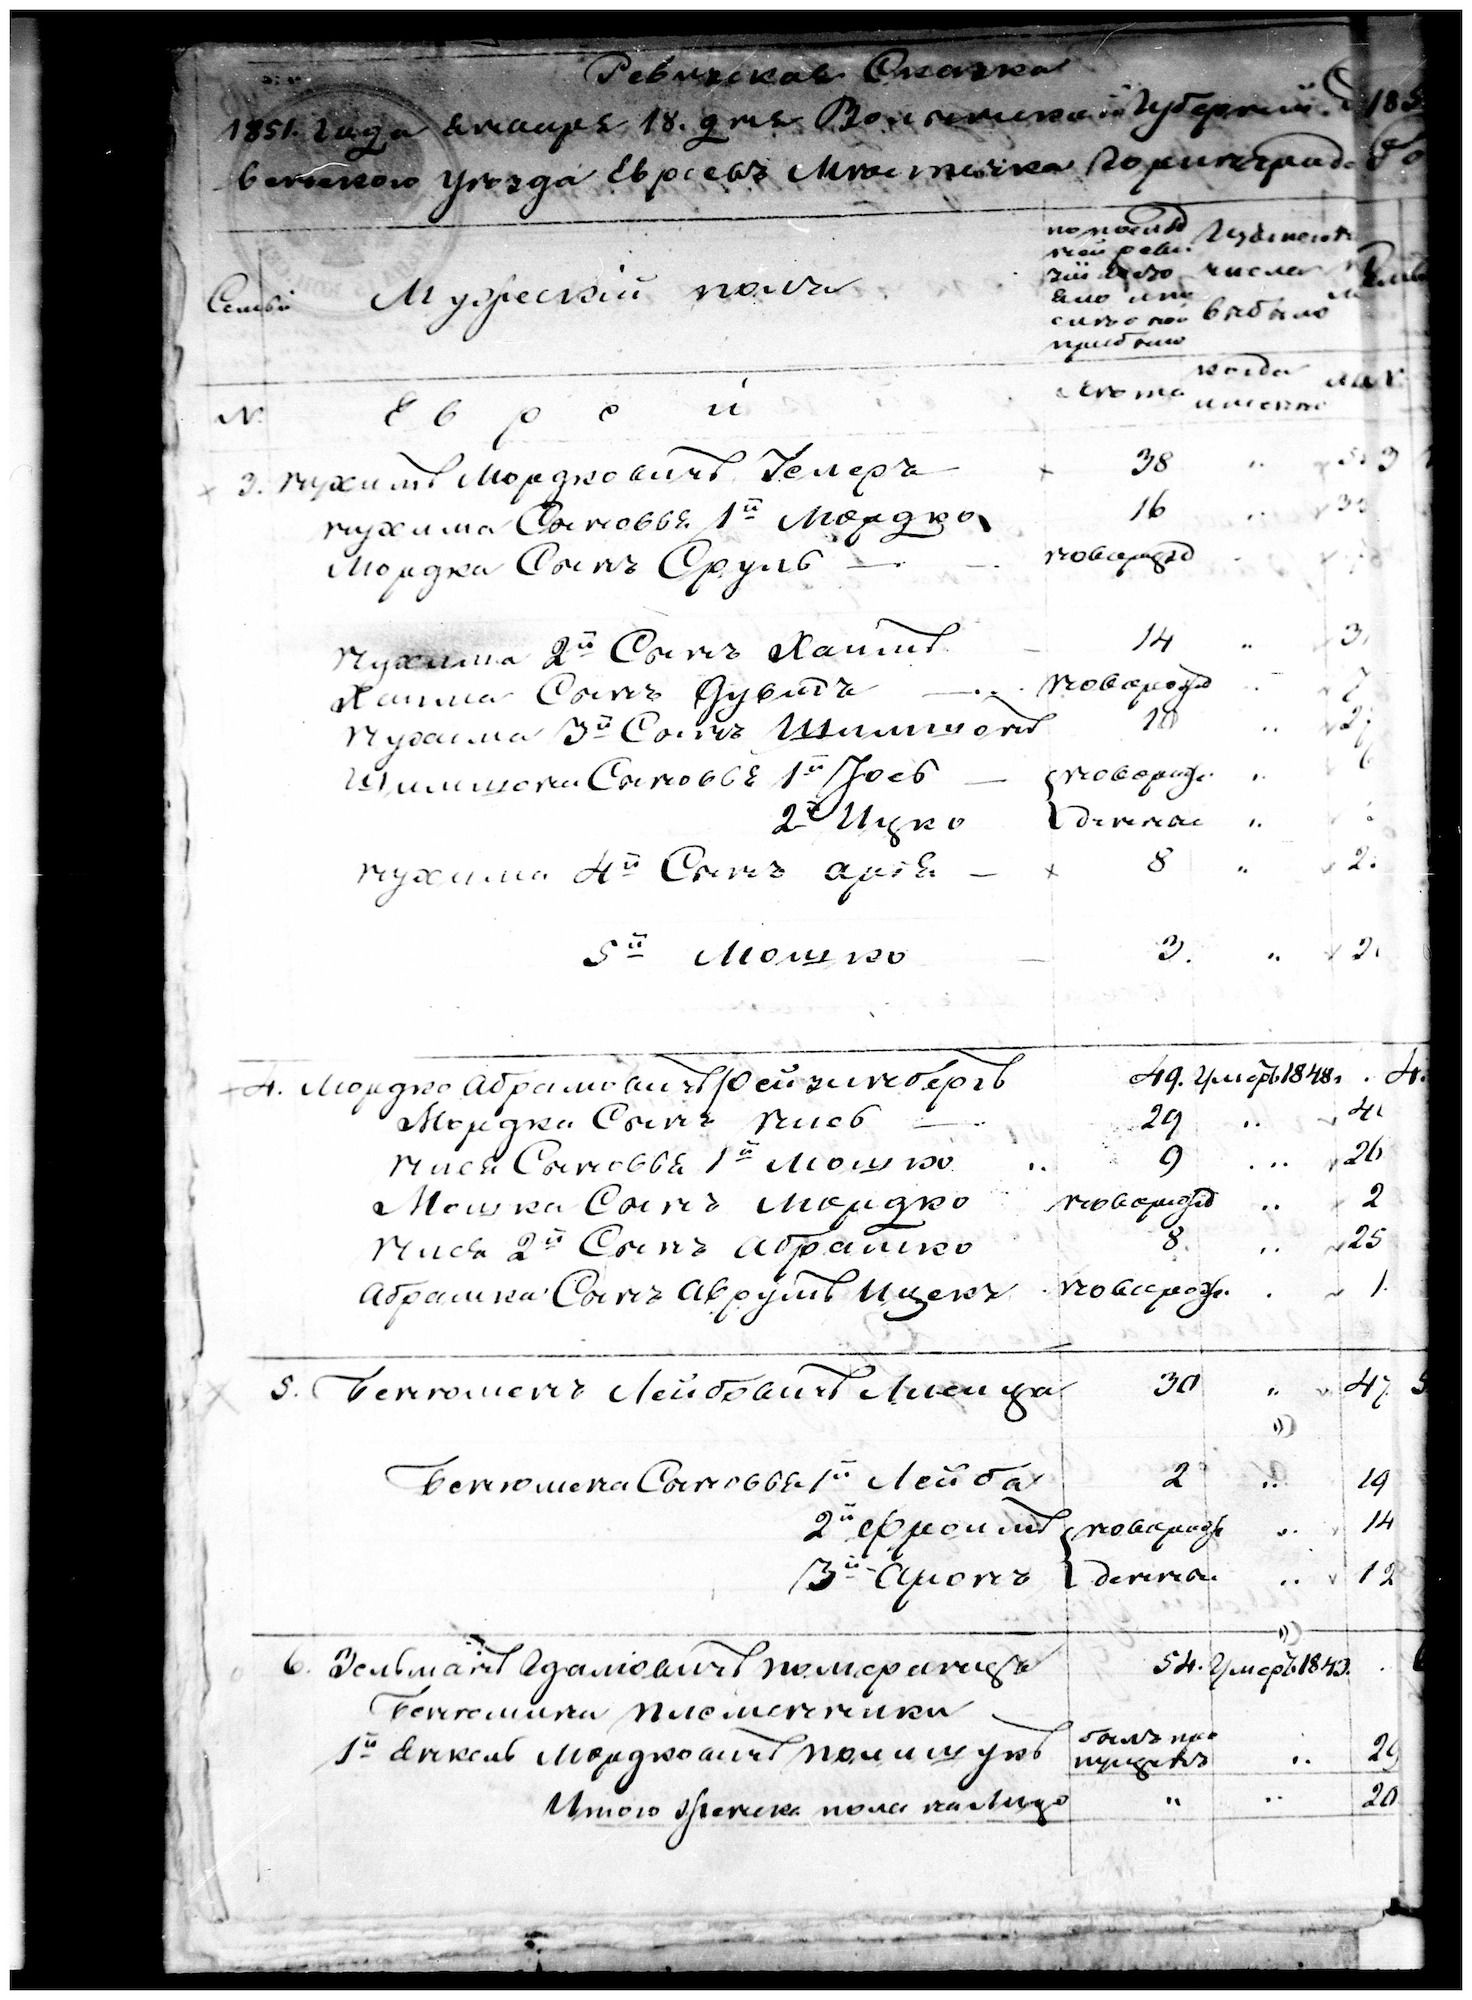 Ревизская Сказка
1851. Года Января 18. дня Волынской Губернии 185
венского уезда Евреевъ Местечка Горинграда
Семьи
Мужеский полъ
по послед
ней реви
зіи состо
яло или
после того
прибыло
Изъ того
числа
выбыло
Лета
когда
именно
№.
Еврей
3. Нухимъ Мордковичъ Гелеръ 38 " 53
Нухима Сыновья 1й Мордко 16
Мордка Сынъ Сруль — новорожд
Нухима 2й Сынъ Хаимъ 14 " 3
Хаима Сынъ Дувидъ — новорожд
Нухима 3й Сынъ Шимшонъ 10 " 27
Шимшона Сыновья 1й Іось — новорож
2й Ицко денное "
Нухима 4й Сынъ Арья — 8 " 2
5й Мошко 3. " 2
4. Мордко Абрамовичъ Фейзинбергъ 49. Умеръ 1848. 4.
Мордка Сынъ Нись — 29 " 4
Нися Сыновья 1й Мошко 9 " 26
Мошка Сынъ Мордко новорожд " 2
Нися 2й Сынъ Абрашко 8. " 25
Абрашка Сынъ Аврумъ Ицекъ новорож. 1
5. Бенюменъ Лейбовичъ Лисица 30 " 47 5
Бенюмена Сыновья 1й Лейба 2 " 19
2й Фроимъ новорож " 14
3й Аронъ денное " 12
6. Зельманъ Гдаліовичъ Померанецъ 54. Умеръ 1843.
Бенюмина племенники
1й Янкель Мордковичъ Полищукъ былъ про
пущенъ " 29
Итого мужеска пола на Лицо " " 20